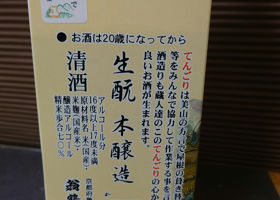 ● お酒は20歳になってから
てんごりは美山の方言で屋根の葺き替え
等をみんなで協力して作業する事を言
酒造りも蔵人達のこのてんごりの心か
良いお酒が生まれます。
生酛 本醸造
清酒
アルコール分
16度以上17度未満
原材料名 米（国産）・
米麹（国産米）・
醸造アルコール
精米歩合七〇％
京都府